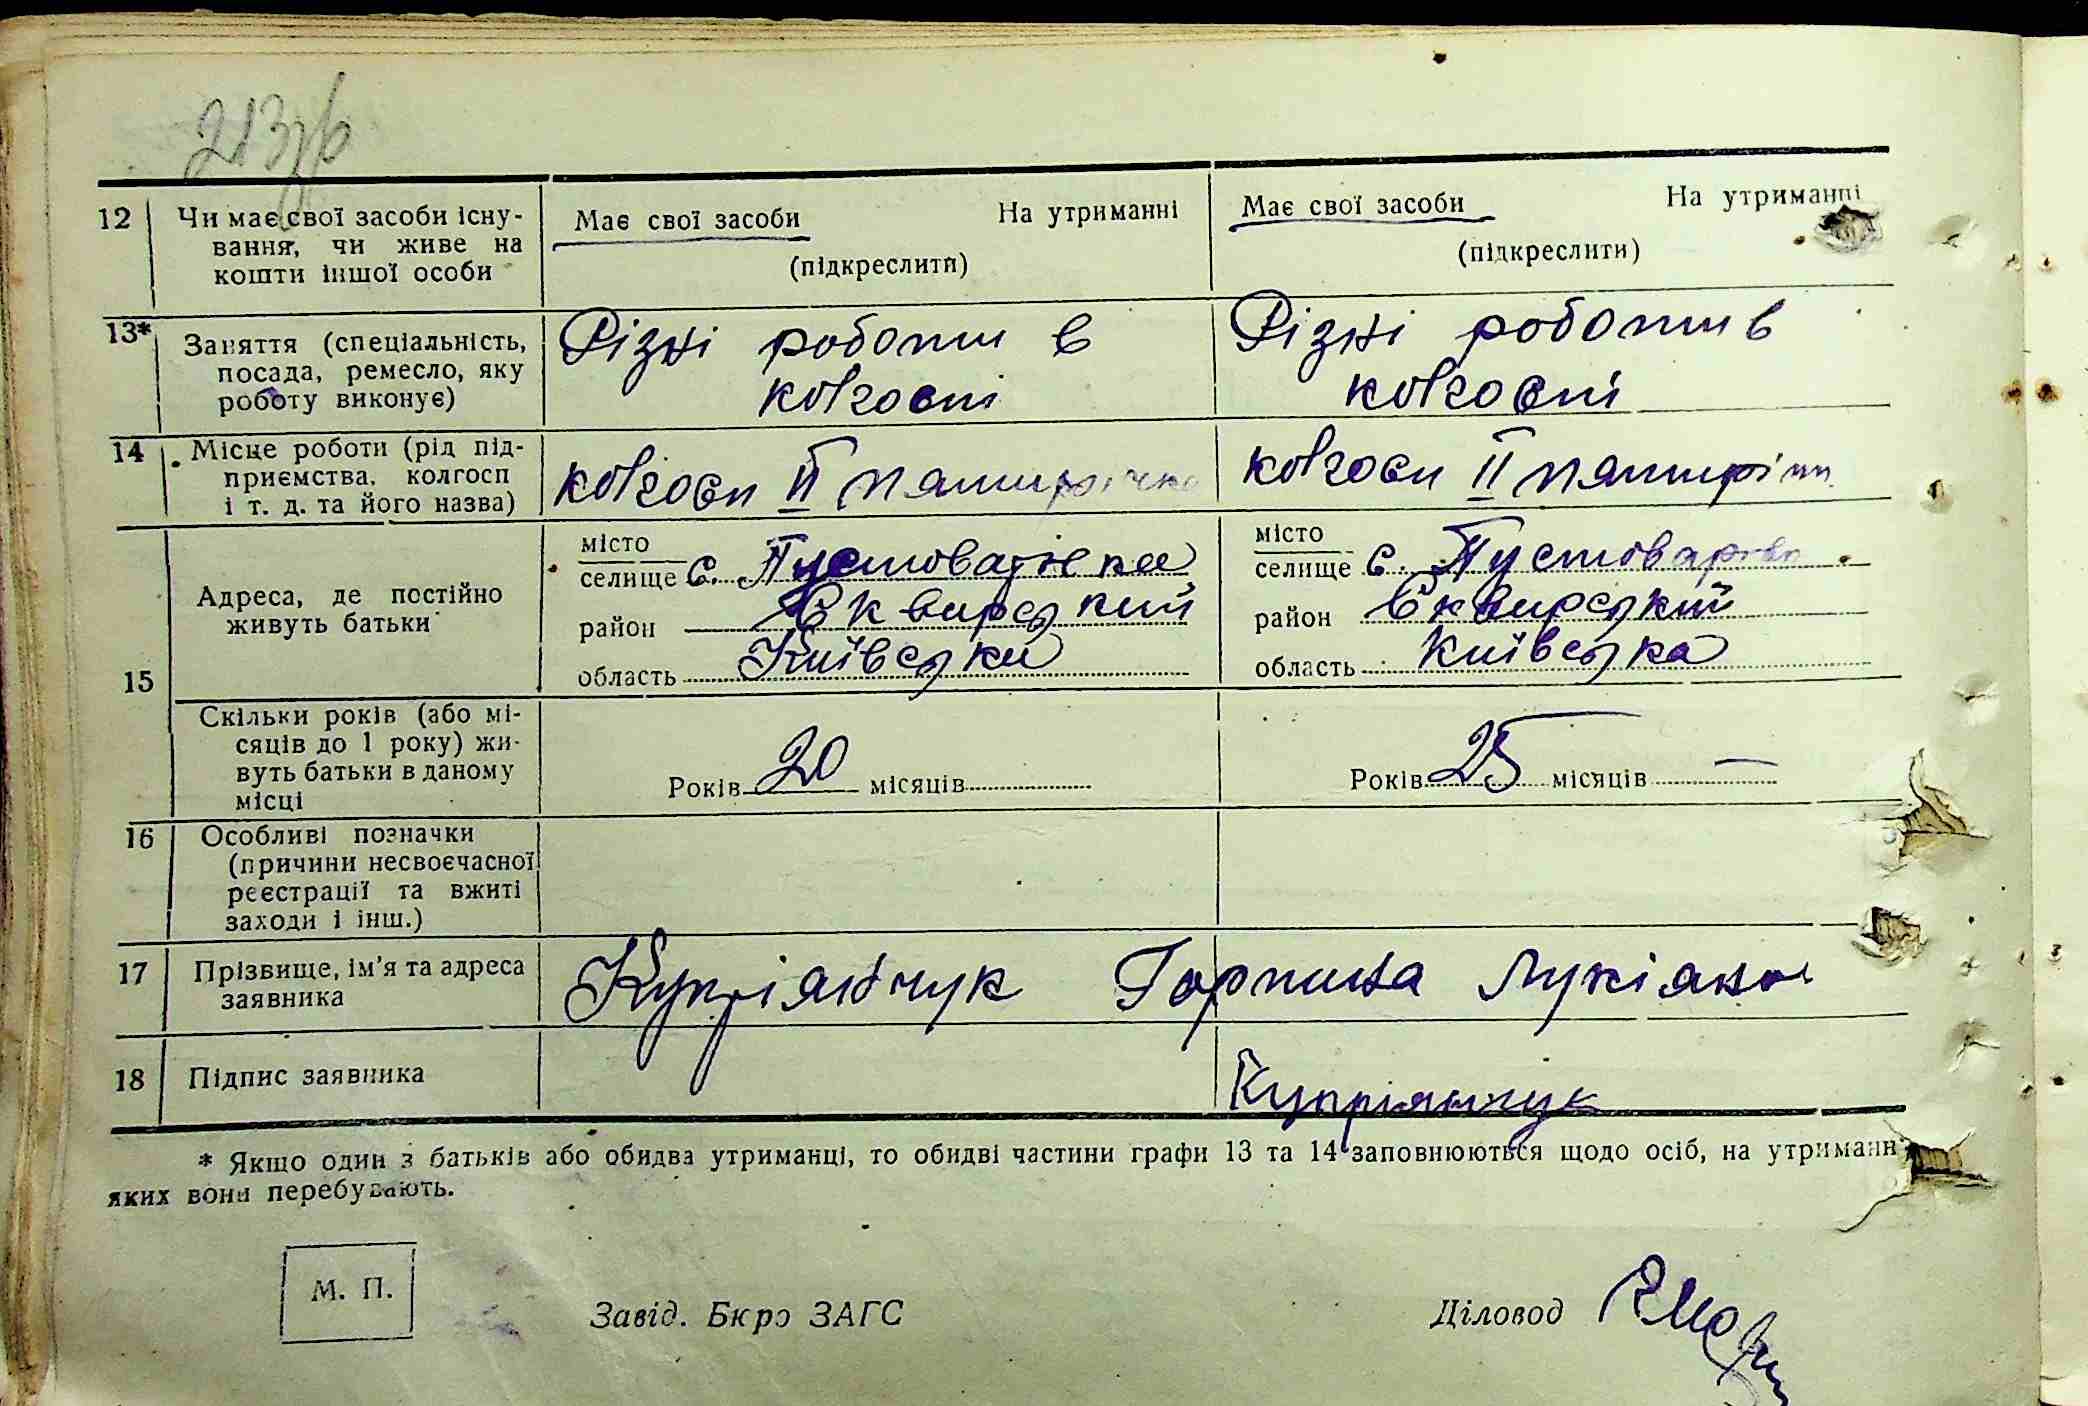 213
12 Чи має свої засоби існу-
вання, чи живе на
кошти іншої особи
Має свої засоби На утриманні
(підкреслити)
Має свої засоби На утриманні
(підкреслити)
13* Заняття (спеціальність,
посада, ремесло, яку
роботу виконує)
Різні роботи в
колгоспі
Різні роботи в
колгоспі
14 Місце роботи (рід під-
приємства, колгосп
і т. д. та його назва)
колгосп ІІ пятирічка
колгосп ІІ пятирічки
15 Адреса, де постійно
живуть батьки
місто
селище с. Пустоварівка
район Сквирський
область Київська
місто
селище с. Пустоварівка
район Сквирський
область Київська
Скільки років (або мі-
сяців до 1 року) жи-
вуть батьки в даному
місці
Років 20 місяців
Років 25 місяців —
16 Особливі позначки
(причини несвоєчасної
реєстрації та вжиті
заходи і інш.)
17 Прізвище, ім’я та адреса
заявника
Купріянчук Горпина Лукіянов
18 Підпис заявника
Купріянчук
* Якщо один з батьків або обидва утриманці, то обидві частини графи 13 та 14 заповнюються щодо осіб, на утриманні
яких вони перебувають.
М. П.
Завід. Бюро ЗАГС
Діловод